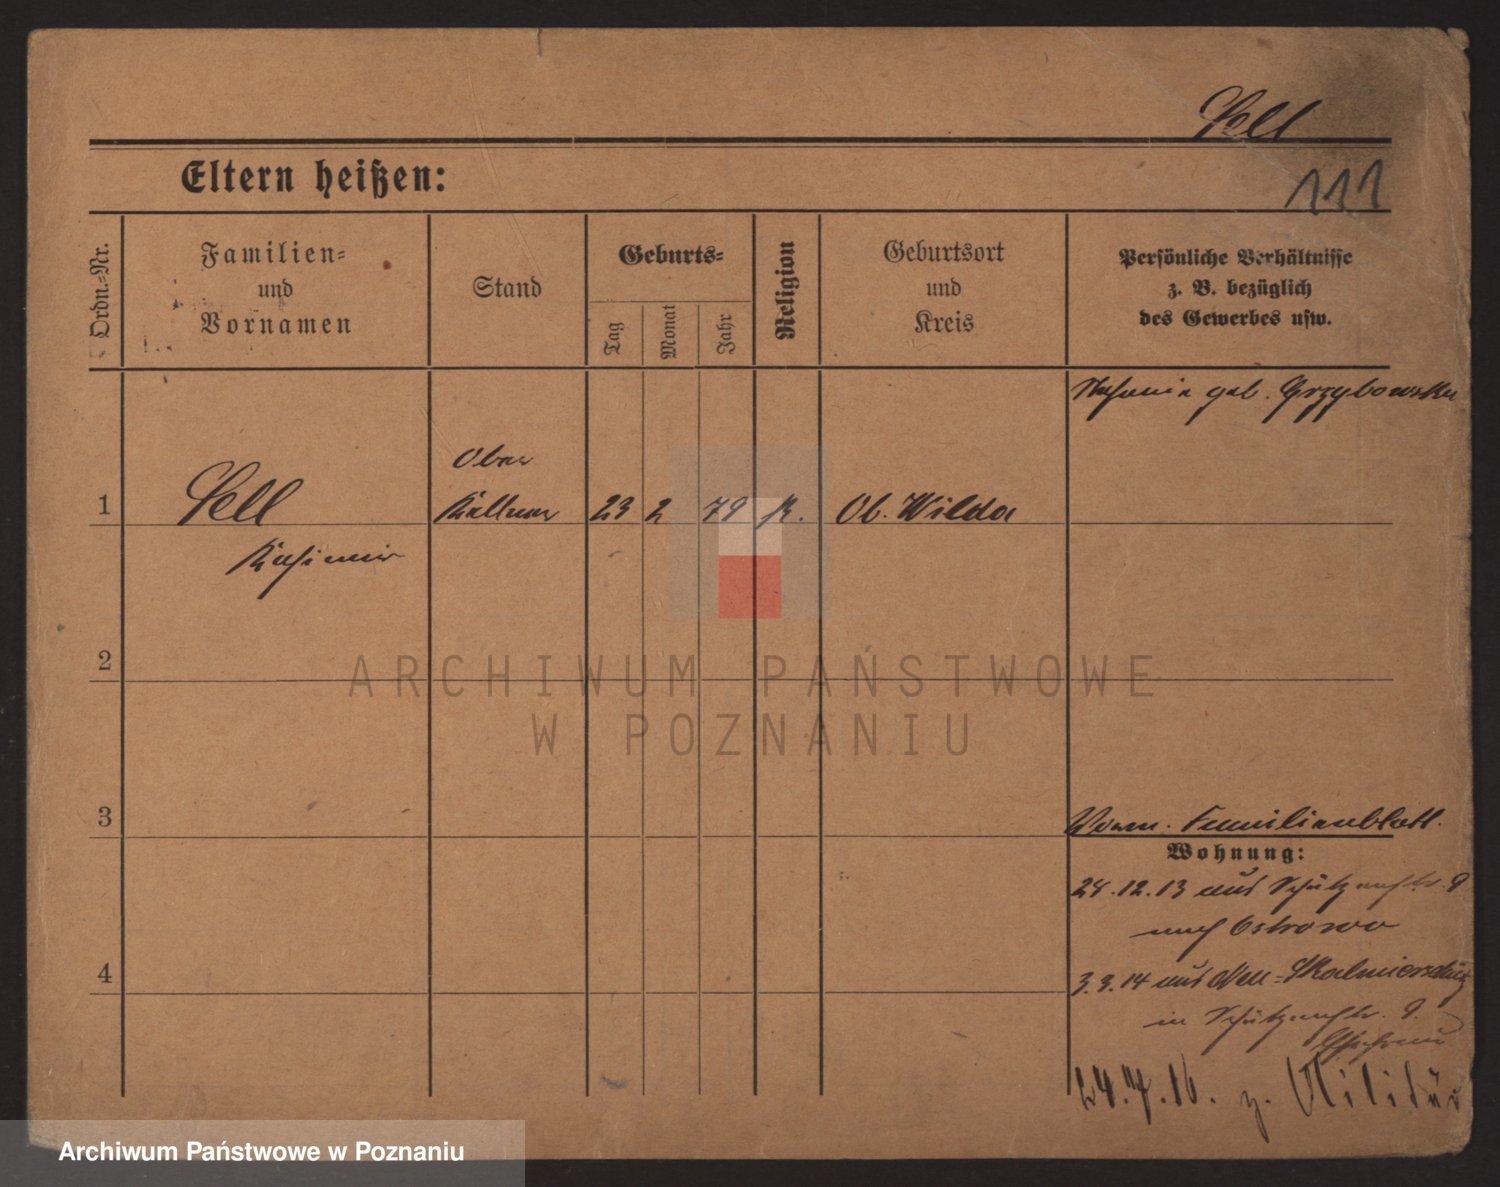 Sell
Eltern heißen:
111
Ordn.-Nr.
Familien-
und
Vornamen
Stand
Geburts-
Tag
Monat
Jahr
Religion
Geburtsort
und
Kreis
Persönliche Verhältnisse
z. B. bezüglich
des Gewerbes usw.
geb. Grzybowska
Ober
1 Sell Kellner 23 2 79 K. Ob. Wilda
Kasimir
2
3
Familienblatt.
Wohnung:
24.12.13 aus Schützenstr. 9
nach Ostrowo
4
3.3.14 aus Neu-Skalmierschütz
in Schützenstr. 9.
24.7.16. z. Militär
ARCHIWUM PAŃSTWOWE
W POZNANIU
Archiwum Państwowe w Poznaniu